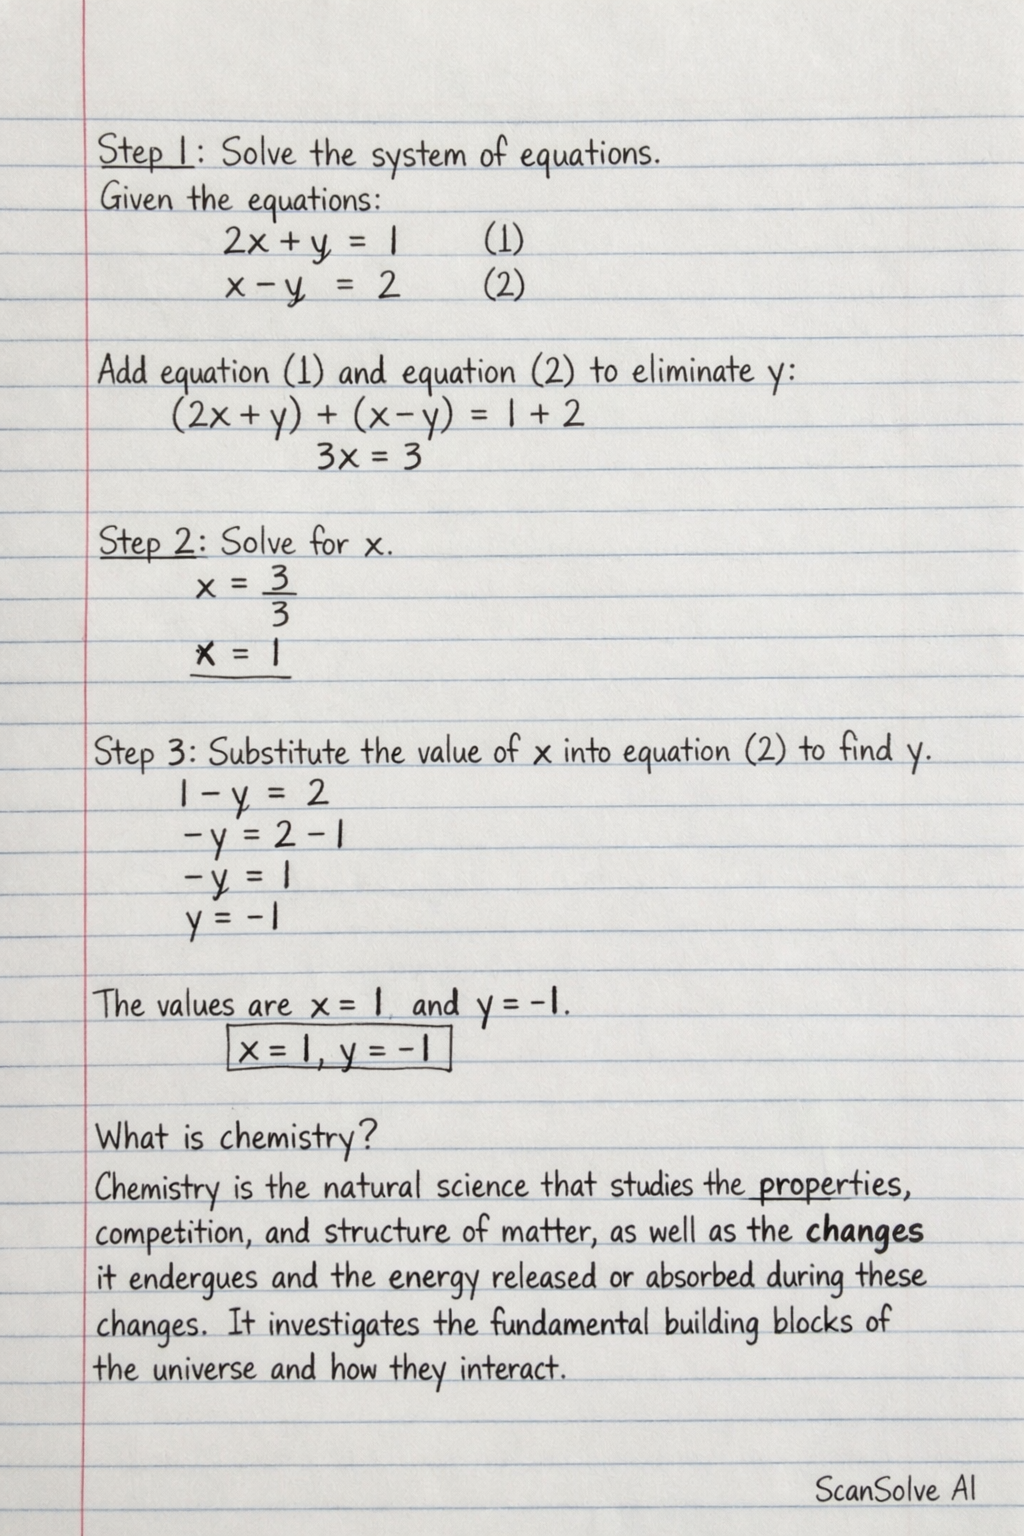 Step 1: Solve the system of equations.
Given the equations:
2x + y = 1 (1)
x - y = 2 (2)
Add equation (1) and equation (2) to eliminate y:
(2x + y) + (x - y) = 1 + 2
3x = 3
Step 2: Solve for x.
x = 3/3
x = 1
Step 3: Substitute the value of x into equation (2) to find y.
1 - y = 2
-y = 2 - 1
-y = 1
y = -1
The values are x = 1 and y = -1.
x = 1, y = -1
What is chemistry?
Chemistry is the natural science that studies the properties,
competition, and structure of matter, as well as the changes
it endergues and the energy released or absorbed during these
changes. It investigates the fundamental building blocks of
the universe and how they interact.
ScanSolve AI